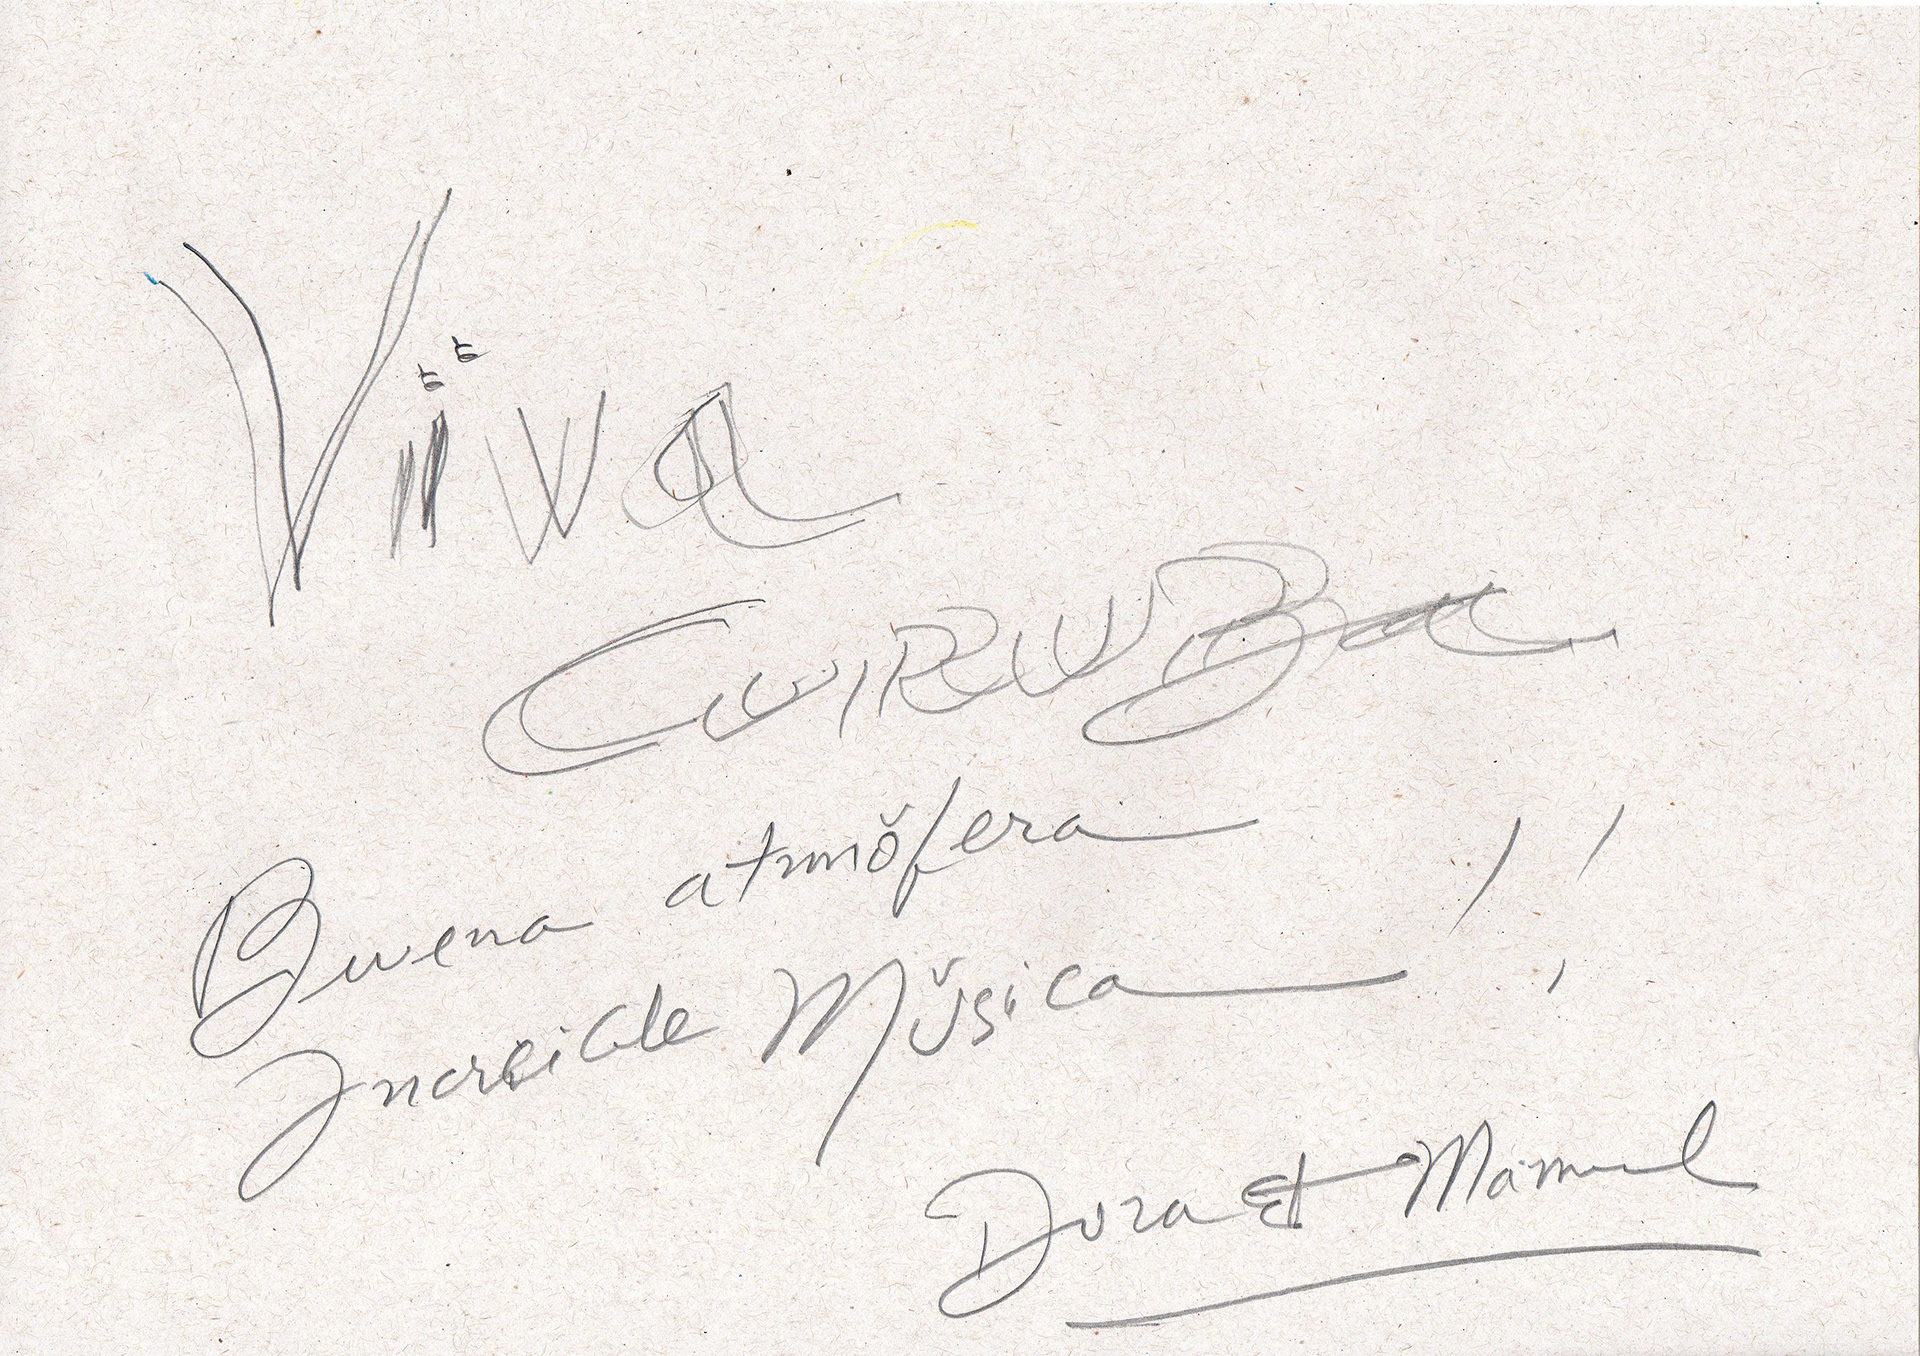 Viva
CuiRUBa
Buena atmŏfera
Increible Mŭsica !!
Dora Et Manuel